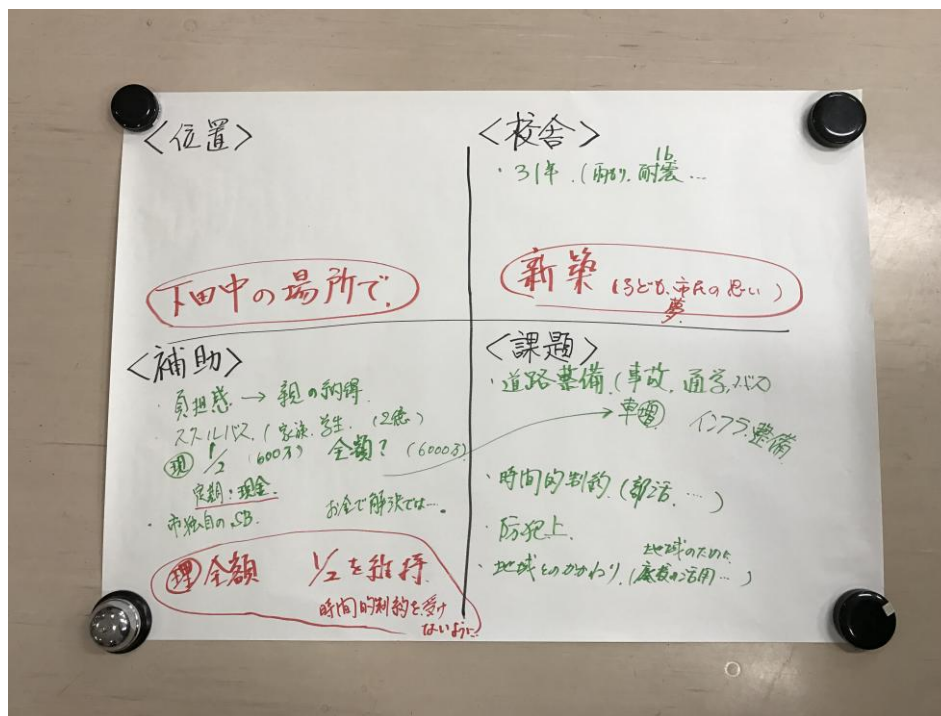 <位置>
下田中の場所で.
<校舎>
16
・31年.(雨もり.耐震…
新築(子ども、市民の思い)
夢
<補助>
・負担感→親の納得.
・スクールバス.(家族.学生.(2億)
現 1/2 (600万) 全額? (6000万)
定期:現金.
お金で解決では….
・市独自のSB.
理 全額 1/2を維持.
時間的制約を受け
ないように
<課題>
・道路整備.(事故.通学バス
車増 インフラ整備
・時間的制約.(部活.…)
・防犯上.
地域のために
・地域とのかかわり.(廃校の活用…)